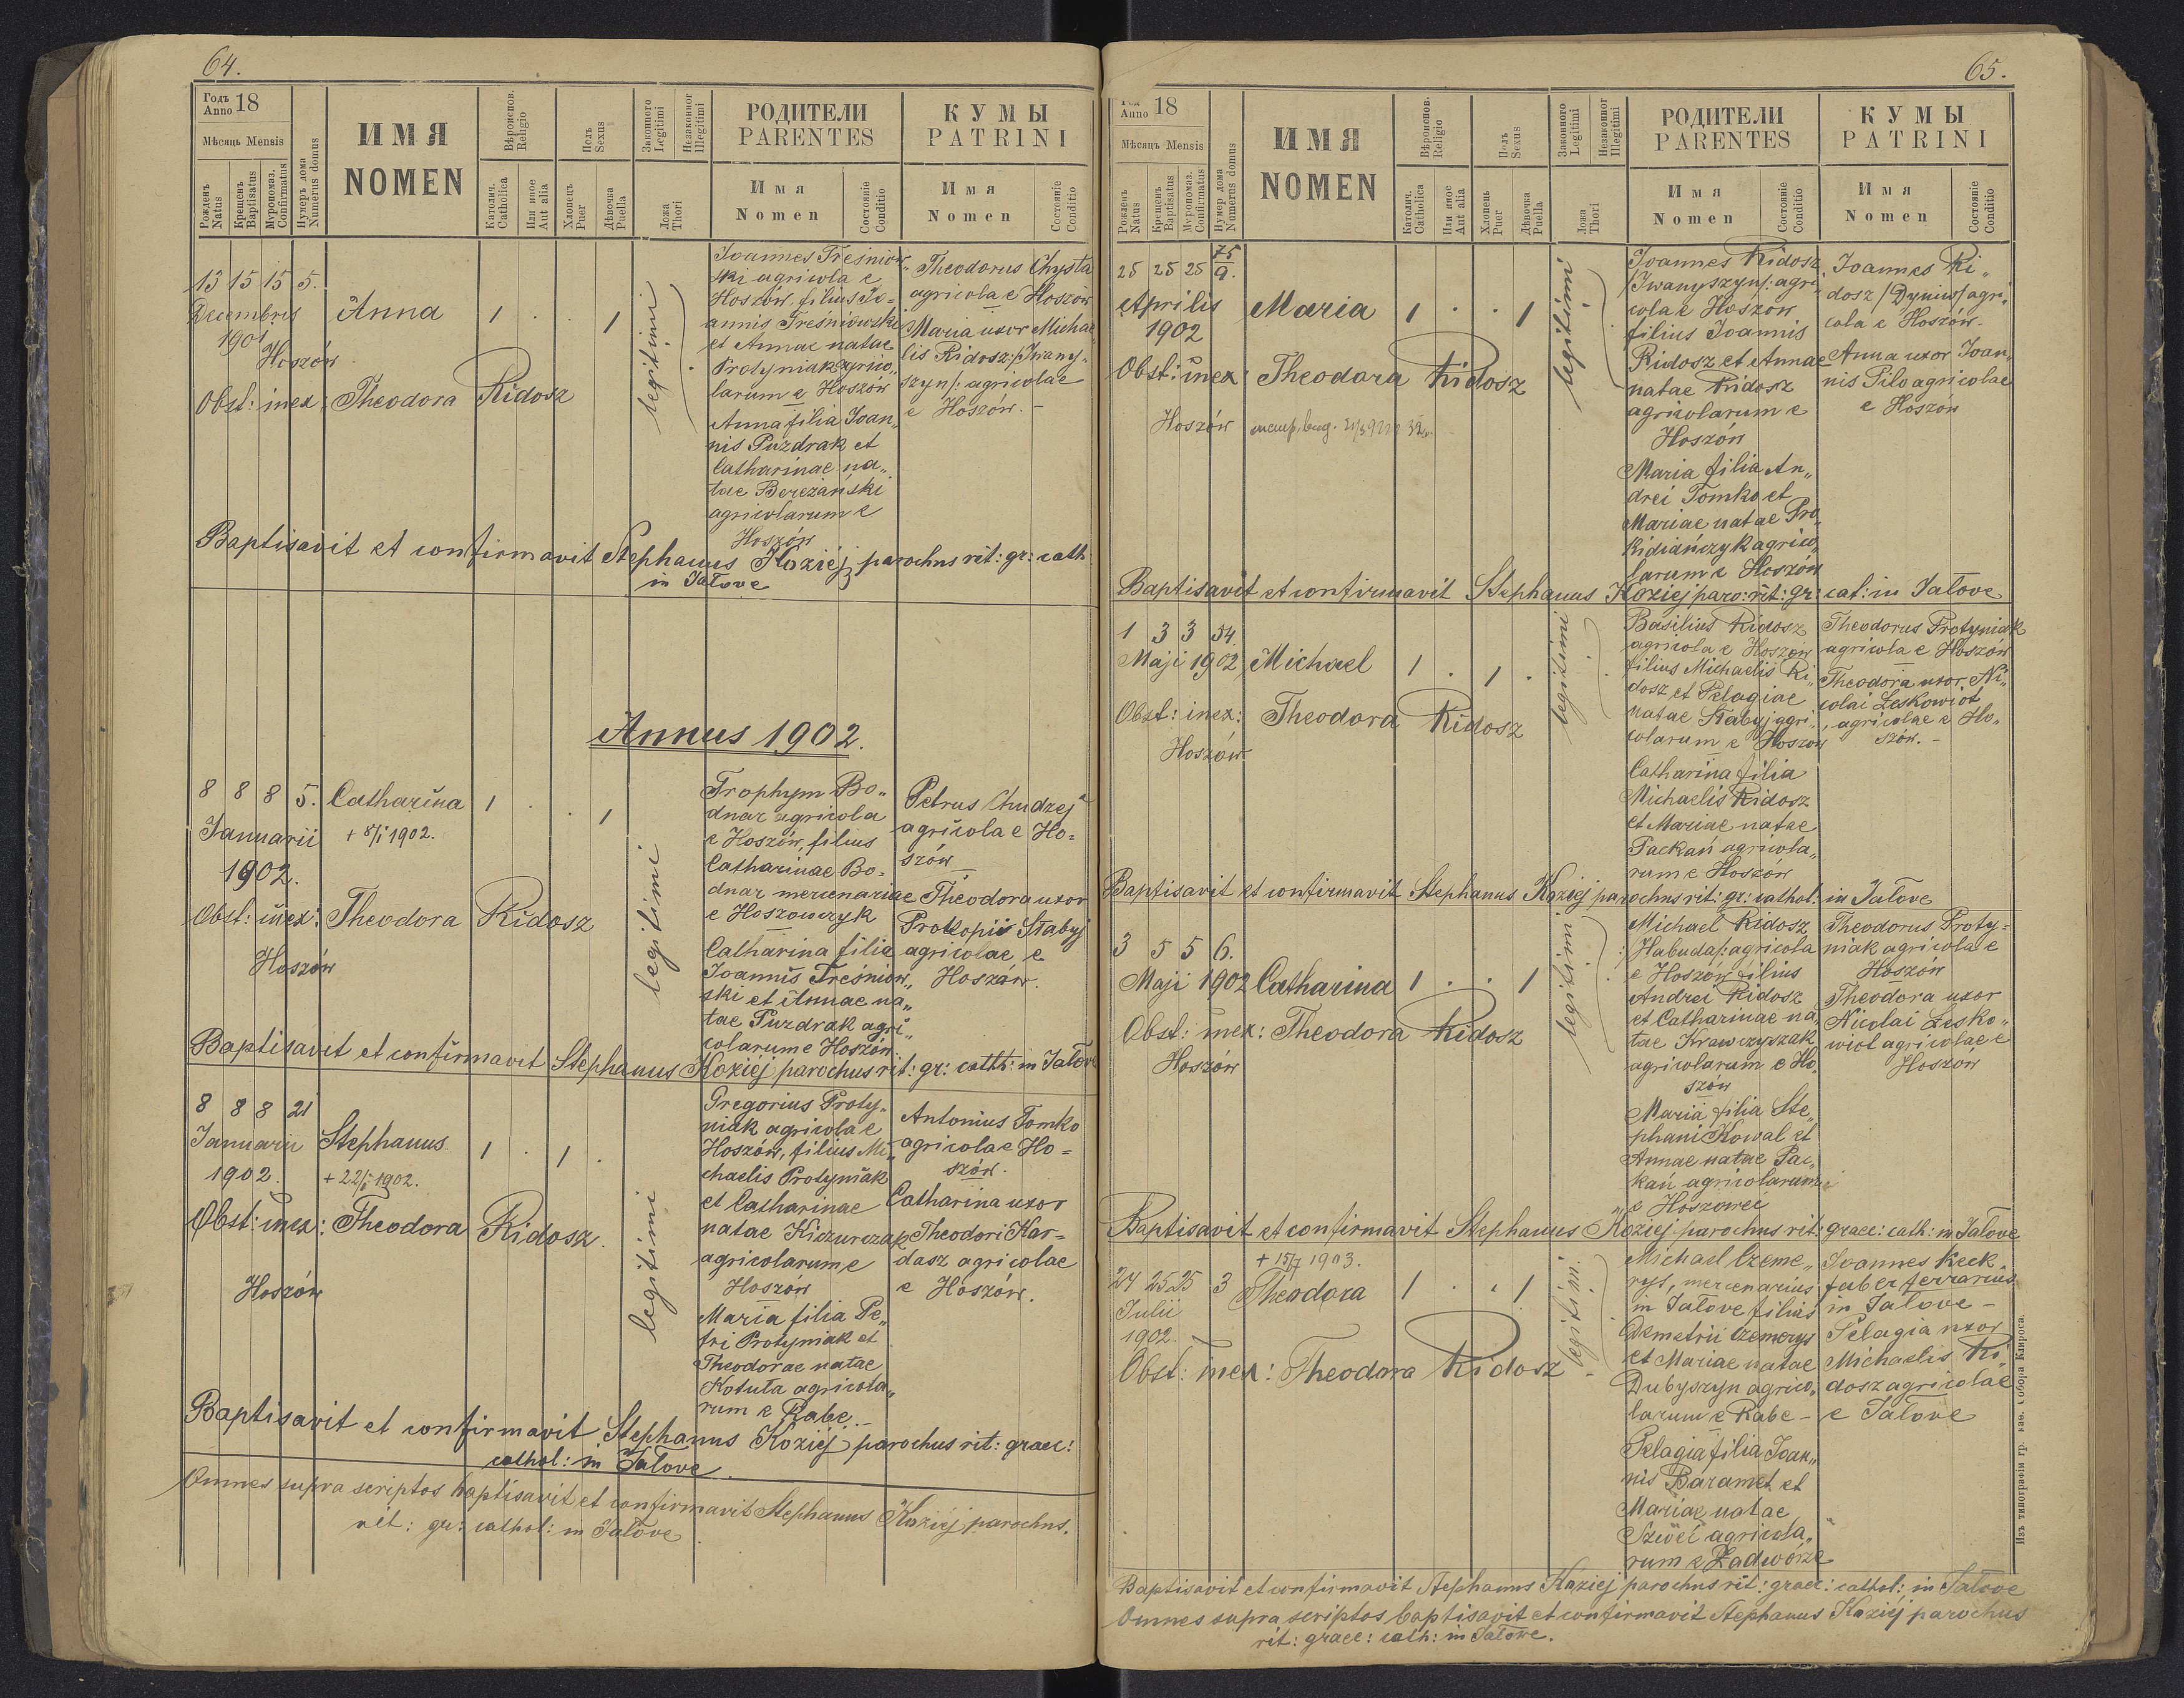 64.
Годъ
Anno 18
Мѣсяцъ Mensis
Рожденъ
Natus
Крещенъ
Baptisatus
Муропомаз.
Confirmatus
Нумеръ дома
Numerus domus
ИМЯ
NOMEN
Вѣроиспов.
Religio
Католич.
Catholica
Или иное
Aut alia
Полъ
Sexus
Хлопецъ
Puer
Дѣвочка
Puella
Законного
Legitimi
Незаконног
Illegitimi
Ложа
Thori
РОДИТЕЛИ
PARENTES
Имя
Nomen
Состояніе
Conditio
КУМЫ
PATRINI
Имя
Nomen
Состояніе
Conditio
13 15 15 5.
Decembris
1901
Hoszów
Anna
1 . . 1
legitimi
Obst: inex: Theodora Kidosz
Joannes Treśniow„
ski agricola e
Hoszów, filius Jo=
annis Treśniowski
et Annae natae
Protyniak agrico„
larum e Hoszów
Anna filia Joan„
nis Puzdrak et
Catharinae na„
tae Bereżański
agricolarum e
Hoszów
Theodorus Chysta
agricola e Hoszów
Maria uxor Michae„
lis Kidosz /:Iwany„
szyn/: agricolae
e Hoszów. –
Baptisavit et confirmavit Stephanus Koziej parochus rit: gr: cath
in Jałowe
Annus 1902.
8 8 8 5. Catharina
Januarii + 8/1 1902.
1902.
1 . . 1
legitimi
Obst: inex: Theodora Kidosz
Hoszów
Trophym Bo„
dnar agricola
e Hoszów, filius
Catharinae Bo=
dnar mercenariae
e Hoszowczyk
Catharina filia
Joannis Treśniow„
ski et Annae na„
tae Puzdrak agri„
colarum e Hoszów.
Petrus Chudzej
agricola e Ho=
szów
Theodora uxor
Prokopii Słabyj
agricolae e
Hoszów.
Baptisavit et confirmavit Stephanus Koziej parochus rit: gr: cath: in Jałowe
8 8 8 21
Januarii Stephanus
1902. + 22/1 1902.
1 . 1 .
legitimi
Obst: inex: Theodora Kidosz.
Hoszów
Gregorius Proty„
niak agricola e
Hoszów, filius Mi„
chaelis Protyniak
et Catharinae
natae Kiczurczak
agricolarum e
Hoszów
Maria filia Pe„
tri Protyniak et
Theodorae natae
Kotuła agricola„
rum e Rabe. –
Antonius Tomko
agricola e Ho=
szów.
Catharina uxor
Theodori Kar=
dasz agricolae
e Hoszów.
Baptisavit et confirmavit Stephanus Koziej parochus rit: graec:
cathol: in Jałowe.
Omnes supra scriptos baptisavit et confirmavit Stephanus Koziej parochus.
rit: gr: cathol: in Jałowe
65.
Anno 18
Мѣсяцъ Mensis
Рожденъ
Natus
Крещенъ
Baptisatus
Муропомаз.
Confirmatus
Нумер дома
Numerus domus
ИМЯ
NOMEN
Вѣроиспов.
Religio
Католич.
Catholica
Или иное
Aut alia
Полъ
Sexus
Хлопець
Puer
Дѣвочка
Puella
Законного
Legitimi
Незаконног
Illegitimi
Ложа
Thori
РОДИТЕЛИ
PARENTES
Имя
Nomen
Состояніе
Conditio
КУМЫ
PATRINI
Имя
Nomen
Состояніе
Conditio
25 25 25 75/9.
Aprilis
1902
Maria
1 . . 1
legitimi
Obst: inex: Theodora Kidosz
Hoszów
Joannes Kidosz
/Iwanyszyn/: agri„
cola e Hoszów
filius Joannis
Kidosz et Annae
natae Kidosz
agricolarum e
Hoszów
Maria filia An„
drei Tomko et
Mariae natae Pro„
kidiańczyk agrico„
larum e Hoszów
Joannes Ki„
dosz /Dyniw/ agri„
cola e Hoszów.
Anna uxor Joan„
nis Pilo agricolae
e Hoszów
Baptisavit et confirmavit Stephanus Koziej paro: rit: gr: cat: in Jałowe
1 3 3 54
Maji 1902 Michael
1 . 1 .
legitimi
Obst: inex: Theodora Kidosz
Hoszów
Basilius Kidosz
agricola e Hoszów
filius Michaelis Ki„
dosz et Pelagiae
natae Słabyj agri„
colarum e Hoszow
Catharina filia
Michaelis Kidosz
et Mariae natae
Packań agricola„
rum e Hoszów
Theodorus Protyniak
agricola e Hoszów
Theodora uxor Ni„
colai Leskowiot
agricolae e Ho„
szów. –
Baptisavit et confirmavit Stephanus Koziej parochus rit: gr: cathol: in Jałowe
3 5 5 6.
Maji 1902 Catharina
1 . . 1
legitimi
Obst: inex: Theodora Kidosz
Hoszów
Michael Kidosz
/:Habuda/: agricola
e Hoszów filius
Andrei Kidosz
et Catharinae na„
tae Krawczyszak
agricolarum e Ho„
szów
Maria filia Ste„
phani Kowal et
Annae natae Pac„
kań agricolarum
e Hoszowei
Theodorus Proty=
niak agricola e
Hoszów
Theodora uxor
Nicolai Lesko„
wiot agricolae e
Hoszów
Baptisavit et confirmavit Stephanus Koziej parochus rit: graec: cath: in Jałowe
+ 15/7 1903.
24 25 25 3 Theodora
Julii
1902.
1 . . 1
legitimi
Obst: inex: Theodora Kidosz
Michael Czeme„
rys, mercenarius
in Jałowe filius
Demetrii Czemerys
et Mariae natae
Dubyszyn agrico„
larum e Rabe –
Pelagia filia Joan„
nis Baramet et
Mariae natae
Szwec agricola„
rum e Żadwórze
Joannes Keck
faber ferrarius
in Jałowe –
Pelagia uxor
Michaelis Ki„
dosz agricolae
e Jałowe
Baptisavit et confirmavit Stephanus Koziej parochus rit: graec: cathol: in Jałowe
Omnes supra scriptos baptisavit et confirmavit Stephanus Koziej parochus
rit: graec: cath: in Jałowe.
Изъ типографіи гр. каѳ. Собора Клироса.